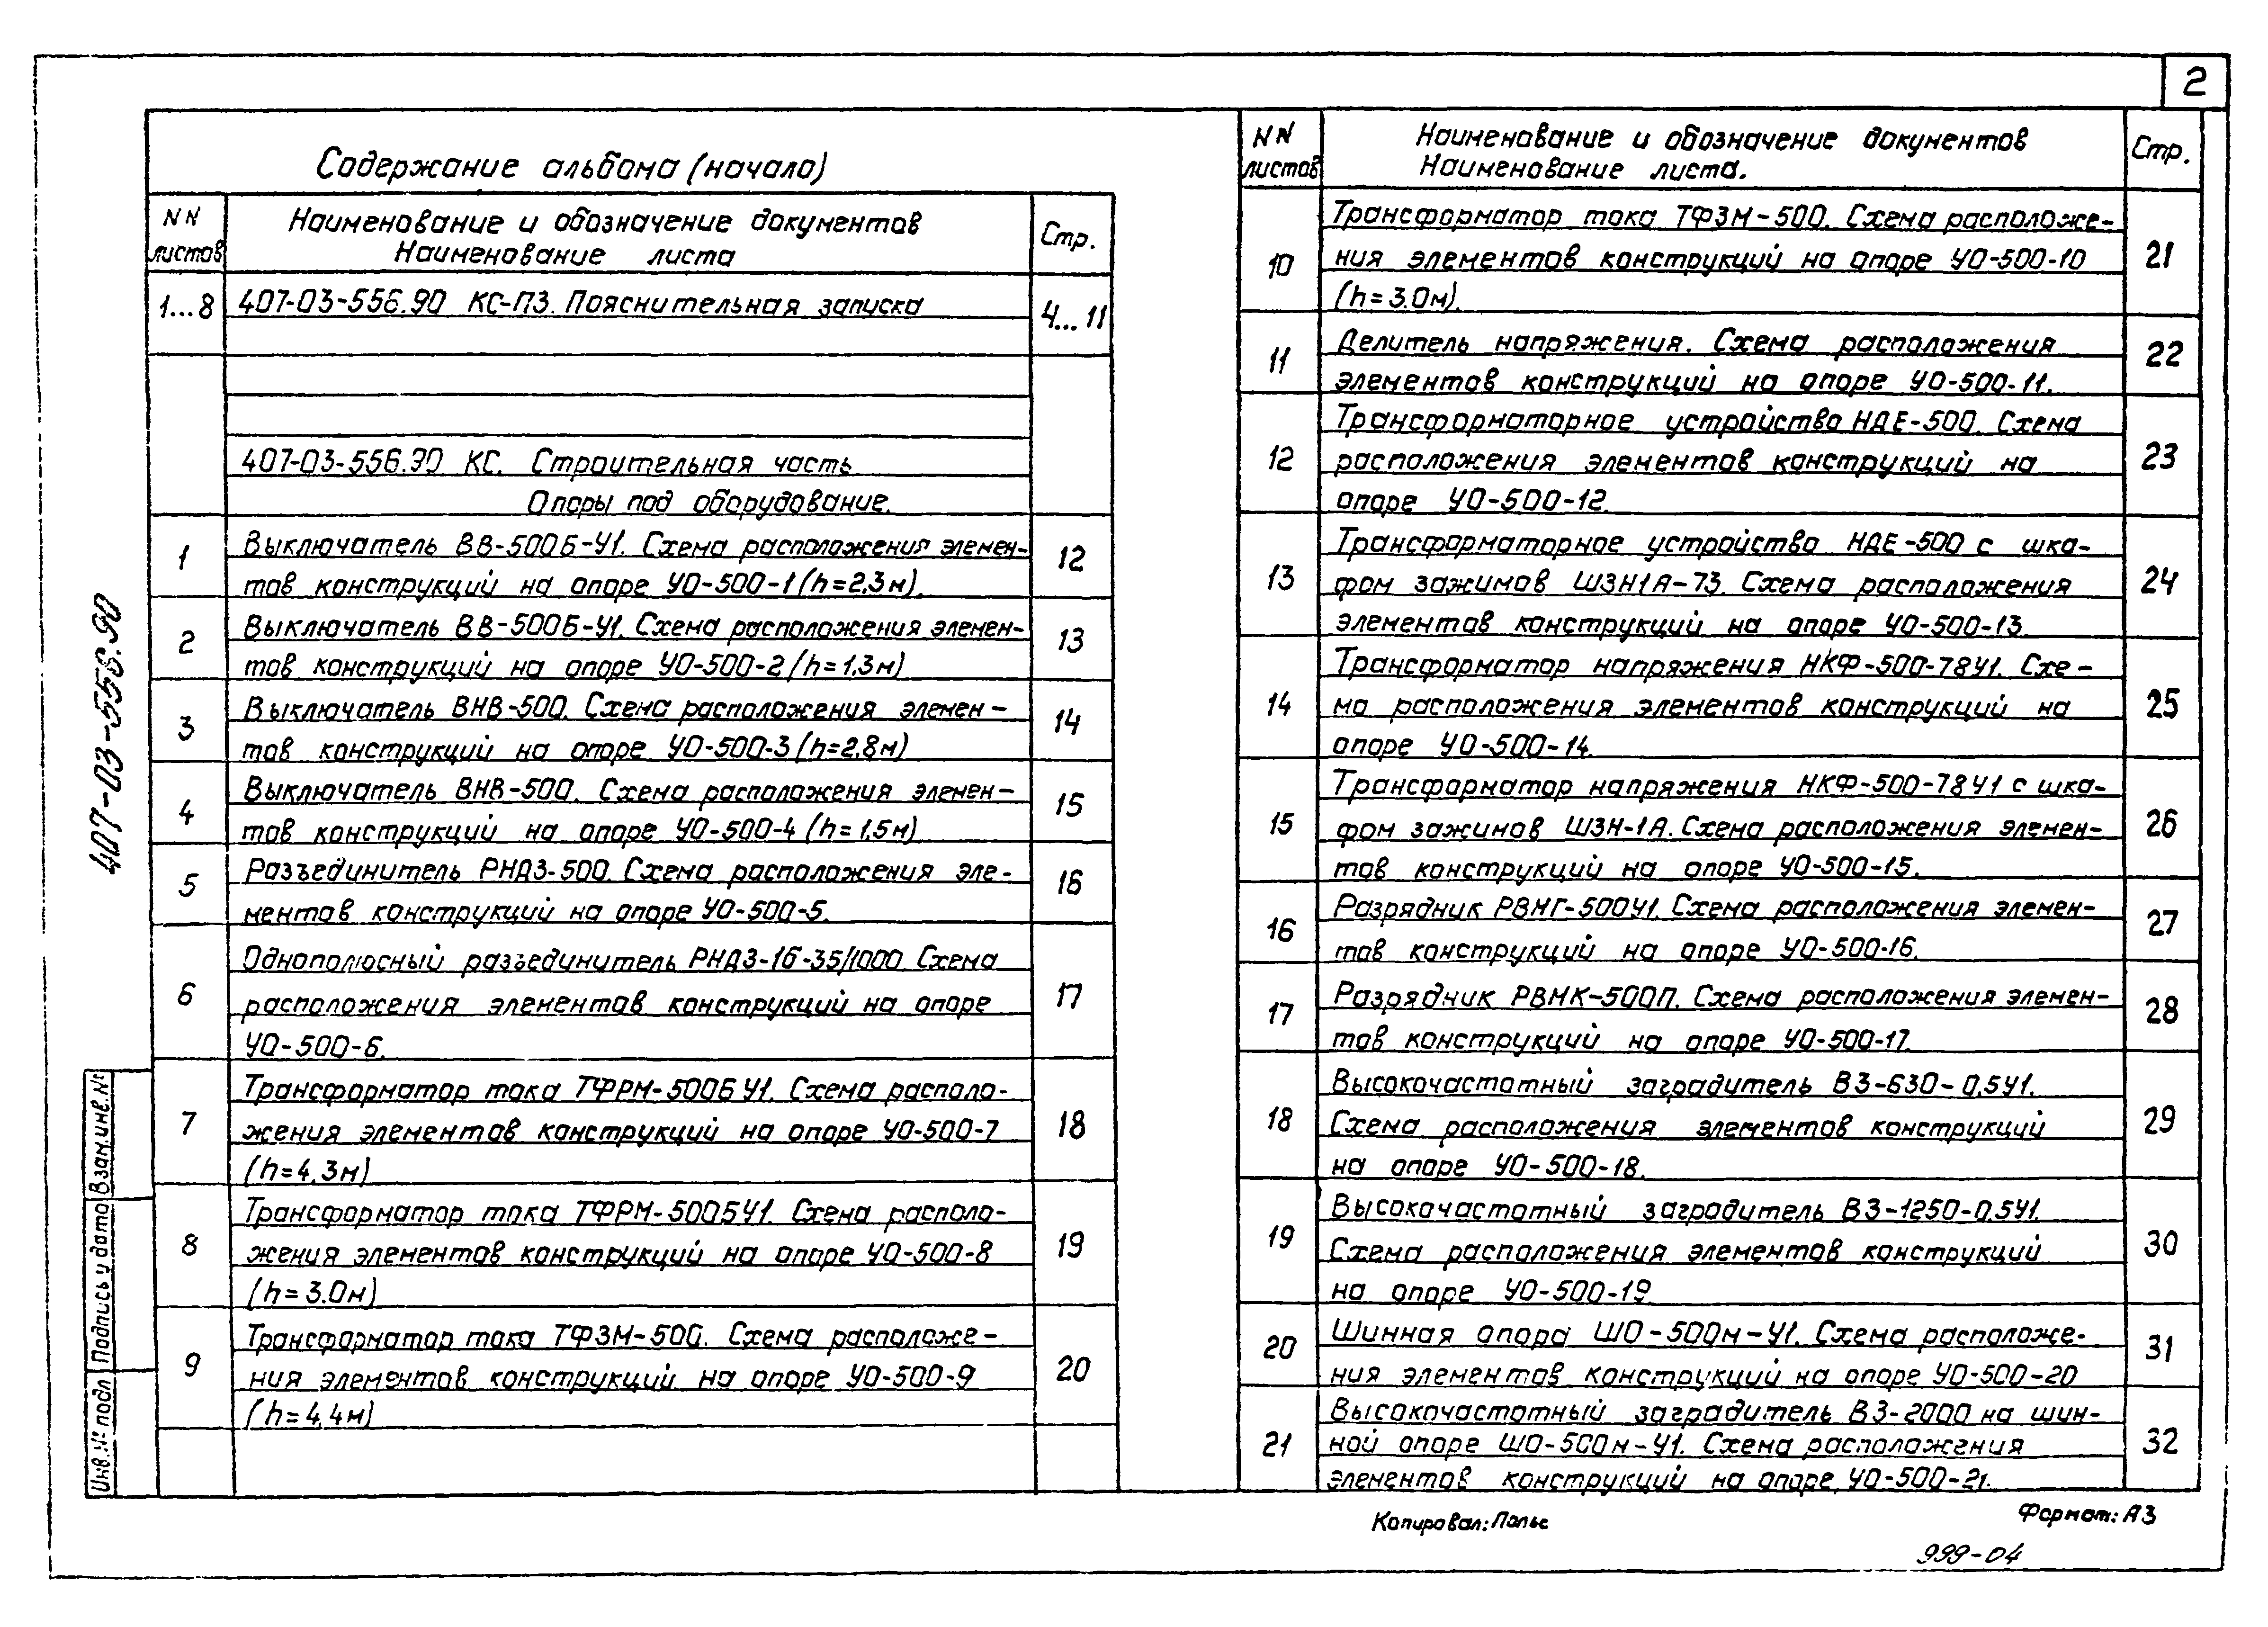 2
Содержание альбома (начало)
NN листов
Наименование и обозначение документов
Наименование листа
Стр.
1...8
407-03-556.90 КС-ПЗ. Пояснительная записка
4...11
407-03-556.90 КС. Строительная часть
Опоры под оборудование.
1
Выключатель ВВ-500Б-У1. Схема расположения элемен-
тов конструкций на опоре УО-500-1 (h=2,3м).
12
2
Выключатель ВВ-500Б-У1. Схема расположения элемен-
тов конструкций на опоре УО-500-2 (h=1,3м)
13
3
Выключатель ВНВ-500. Схема расположения элемен-
тов конструкций на опоре УО-500-3 (h=2,8м)
14
4
Выключатель ВНВ-500. Схема расположения элемен-
тов конструкций на опоре УО-500-4 (h=1,5м)
15
5
Разъединитель РНДЗ-500. Схема расположения эле-
ментов конструкций на опоре УО-500-5.
16
6
Однополюсный разъединитель РНДЗ-1б-35/1000. Схема
расположения элементов конструкций на опоре
УО-500-6.
17
7
Трансформатор тока ТФРМ-500Б У1. Схема располо-
жения элементов конструкций на опоре УО-500-7
(h=4,3м)
18
8
Трансформатор тока ТФРМ-500БУ1. Схема располо-
жения элементов конструкций на опоре УО-500-8
(h=3.0м)
19
9
Трансформатор тока ТФЗМ-500. Схема расположе-
ния элементов конструкций на опоре УО-500-9
(h=4,4м)
20
NN
листов
Наименование и обозначение документов
Наименование листа.
Стр.
10
Трансформатор тока ТФЗМ-500. Схема расположе-
ния элементов конструкций на опоре УО-500-10
(h=3.0м).
21
11
Делитель напряжения. Схема расположения
элементов конструкций на опоре УО-500-11.
22
12
Трансформаторное устройство НДЕ-500. Схема
расположения элементов конструкций на
опоре УО-500-12.
23
13
Трансформаторное устройство НДЕ-500 с шка-
фом зажимов ШЗН1А-73. Схема расположения
элементов конструкций на опоре УО-500-13.
24
14
Трансформатор напряжения НКФ-500-78У1. Схе-
ма расположения элементов конструкций на
опоре УО-500-14.
25
15
Трансформатор напряжения НКФ-500-78У1 с шка-
фом зажимов ШЗН-1А. Схема расположения элемен-
тов конструкций на опоре УО-500-15.
26
16
Разрядник РВМГ-500У1. Схема расположения элемен-
тов конструкций на опоре УО-500-16.
27
17
Разрядник РВМК-500П. Схема расположения элемен-
тов конструкций на опоре УО-500-17.
28
18
Высокочастотный заградитель ВЗ-630-0,5У1.
Схема расположения элементов конструкций
на опоре УО-500-18.
29
19
Высокочастотный заградитель ВЗ-1250-0,5У1.
Схема расположения элементов конструкций
на опоре УО-500-19
30
20
Шинная опора ШО-500м-У1. Схема расположе-
ния элементов конструкций на опоре УО-500-20
31
21
Высокочастотный заградитель ВЗ-2000 на шин-
ной опоре ШО-500м-У1. Схема расположения
элементов конструкций на опоре УО-500-21.
32
407-03-556.90
Инв. № подл
Подпись и дата
Взам.инв.№
Копировал:
Формат: А3
999-04